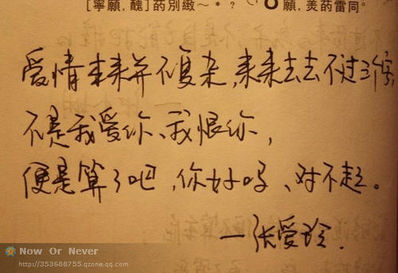 [寧願,醜]药別緻~*? 8願,美药雷同。
爱情本来并不复杂,来来去去不过三个字,
不是我爱你、我恨你,
便是算了吧,你好吗、对不起。
—张爱玲.
Now Or Never
http://353688755.qzone.qq.com